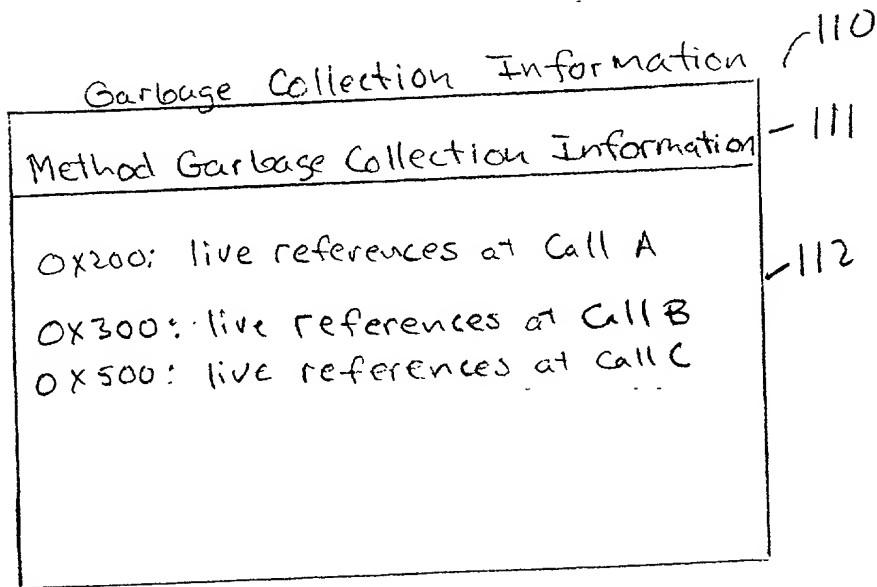 Garbage Collection Information 110
Method Garbage Collection Information 111
0x200: live references at Call A
112
0x300: live references at Call B
0x500: live references at Call C